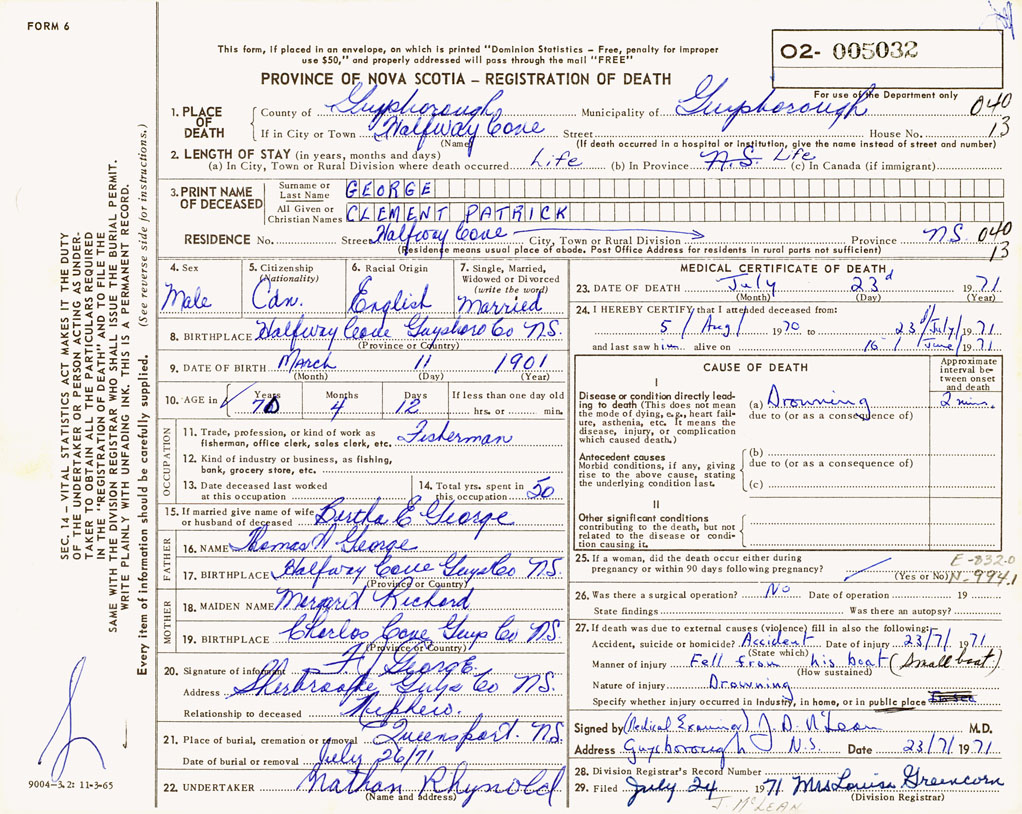 FORM 6
This form, if placed in an envelope, on which is printed "Dominion Statistics – Free, penalty for improper
use $50," and properly addressed will pass through the mail "FREE"
PROVINCE OF NOVA SCOTIA – REGISTRATION OF DEATH
02- 005032
For use of the Department only
040
13
1. PLACE OF DEATH
County of Guysborough Municipality of Guysborough
If in City or Town Halfway Cove Street House No.
(Name) (If death occurred in a hospital or institution, give the name instead of street and number)
2. LENGTH OF STAY (in years, months and days)
(a) In City, Town or Rural Division where death occurred Life (b) In Province N.S. Life (c) In Canada (if immigrant)
3. PRINT NAME OF DECEASED
Surname or Last Name GEORGE
All Given or Christian Names CLEMENT PATRICK
RESIDENCE No. Street Halfway Cove City, Town or Rural Division Province N.S. 040
13
(Residence means usual place of abode. Post Office Address for residents in rural parts not sufficient)
4. Sex
Male
5. Citizenship
(Nationality)
Cdn.
6. Racial Origin
English
7. Single, Married,
Widowed or Divorced
(write the word)
Married
8. BIRTHPLACE Halfway Cove Guysboro Co N.S.
(Province or Country)
9. DATE OF BIRTH March 11 1901
(Month) (Day) (Year)
10. AGE in
Years Months Days If less than one day old
70 4 12 hrs. or min.
OCCUPATION
11. Trade, profession, or kind of work as
fisherman, office clerk, sales clerk, etc. Fisherman
12. Kind of industry or business, as fishing,
bank, grocery store, etc.
13. Date deceased last worked
at this occupation
14. Total yrs. spent in
this occupation 50
15. If married give name of wife
or husband of deceased Bertha E George
FATHER
16. NAME Thomas W George
17. BIRTHPLACE Halfway Cove Guys Co N.S.
(Province or Country)
MOTHER
18. MAIDEN NAME Margret Richard
19. BIRTHPLACE Charlos Cove Guys Co N.S.
(Province or Country)
20. Signature of informant F. J GEORGE.
Address Sherbrooke Guys Co N.S.
Relationship to deceased Nephew.
21. Place of burial, cremation or removal Queensport. N.S.
Date of burial or removal July 26/71
22. UNDERTAKER Nathan Rhynold
(Name and address)
MEDICAL CERTIFICATE OF DEATH
23. DATE OF DEATH July 23d 1971
(Month) (Day) (Year)
24. I HEREBY CERTIFY that I attended deceased from:
5 / Aug / 1970 to 23d/July/1971
and last saw him alive on 16 / June / 1971
CAUSE OF DEATH
Approximate
interval be-
tween onset
and death
I
Disease or condition directly lead-
ing to death (This does not mean
the mode of dying, e.g., heart fail-
ure, asthenia, etc. It means the
disease, injury, or complication
which caused death.)
(a) Drowning 2 mins.
due to (or as a consequence of)
Antecedent causes
Morbid conditions, if any, giving
rise to the above cause, stating
the underlying condition last.
(b)
due to (or as a consequence of)
(c)
II
Other significant conditions
contributing to the death, but not
related to the disease or condi-
tion causing it.
25. If a woman, did the death occur either during
pregnancy or within 90 days following pregnancy?
(Yes or No)
E-832.0
N-994.1
26. Was there a surgical operation? No Date of operation 19
State findings Was there an autopsy?
27. If death was due to external causes (violence) fill in also the following:
Accident, suicide or homicide? Accident Date of injury 23/7/1971
(State which)
Manner of injury Fell from his boat (Small boat)
(How sustained)
Nature of injury Drowning
Specify whether injury occurred in Industry, in home, or in public place
Signed by (Medical Examiner) J. D. McLean M.D.
Address Guysborough N.S. Date 23/7/1971
28. Division Registrar's Record Number
29. Filed July 24 1971 Mrs Louise Greencorn
(Division Registrar)
J. McLEAN
SEC. 14 – VITAL STATISTICS ACT MAKES IT THE DUTY
OF THE UNDERTAKER OR PERSON ACTING AS UNDER-
TAKER TO OBTAIN ALL THE PARTICULARS REQUIRED
IN THE "REGISTRATION OF DEATH" AND TO FILE THE
SAME WITH THE DIVISION REGISTRAR WHO SHALL ISSUE THE BURIAL PERMIT.
WRITE PLAINLY WITH UNFADING INK. THIS IS A PERMANENT RECORD.
Every item of information should be carefully supplied. (See reverse side for instructions.)
9004–3.2: 11-3-65